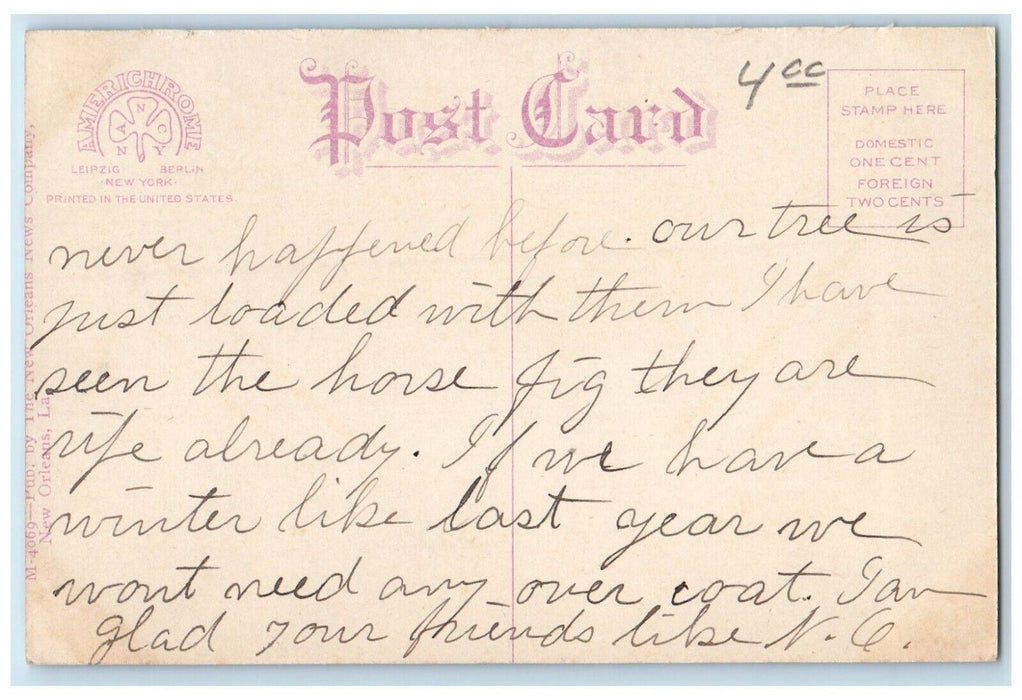 AMERICHROME
N
A C
N Y
LEIPZIG BERLIN
·NEW YORK·
PRINTED IN THE UNITED STATES.
Post Card
4cc
PLACE
STAMP HERE
DOMESTIC
ONE CENT
FOREIGN
TWO CENTS
M-4069—Pub. by The New Orleans News Company,
New Orleans, La.
never happened before. our tree is
just loaded with them I have
seen the horse fig they are
ripe already. If we have a
winter like last year we
wont need any over coat. I am
glad your friends like N.O.